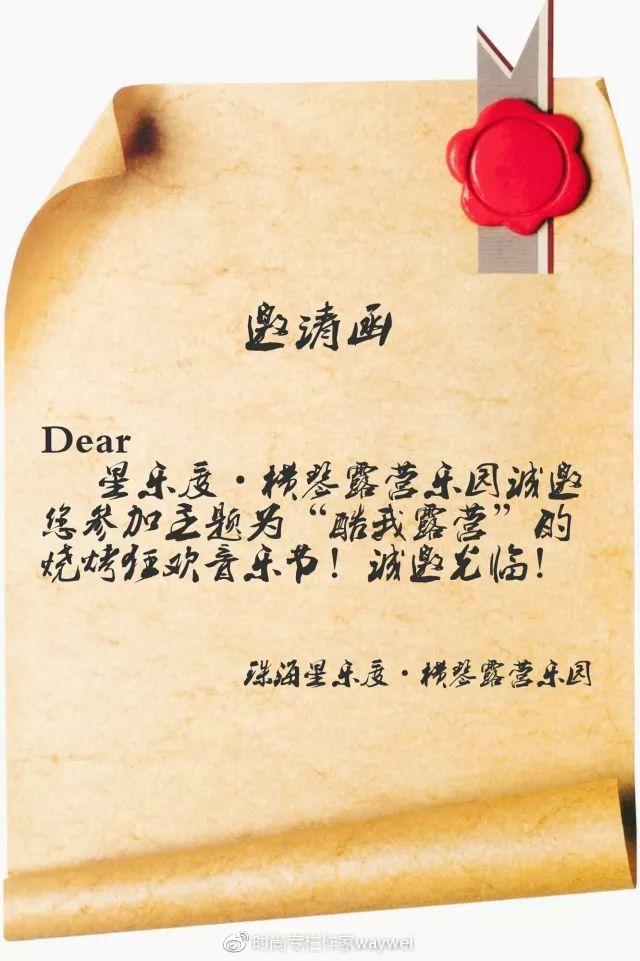 邀请函
Dear
星乐度·横琴露营乐园诚邀
您参加主题为“酷我露营”的
烧烤狂欢音乐节！诚邀光临！
珠海星乐度·横琴露营乐园
时尚专栏作家waywei